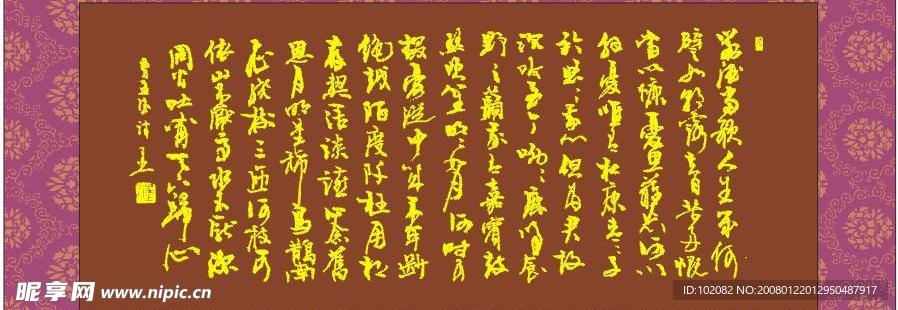 對酒當歌人生幾何
譬如朝露去日苦多慨
當以慷憂思難忘何以
解憂唯有杜康青青子
衿悠々我心但為君故
沉吟至今呦々鹿鳴食
野之蘋我有嘉賓鼓
瑟吹笙明々如月何時可
掇憂從中來不可斷
絕越陌度阡枉用相
存契闊談讌心念舊
恩月明星稀烏鵲南
飛繞樹三匝何枝可
依山不厭高水不厭深
周公吐哺天下歸心
昵享网 www.nipic.cn
ID:102082 NO:20080122012950487917